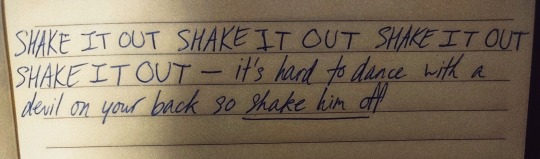 SHAKE IT OUT SHAKE IT OUT SHAKE IT OUT
SHAKE IT OUT – it's hard to dance with a
devil on your back so shake him off